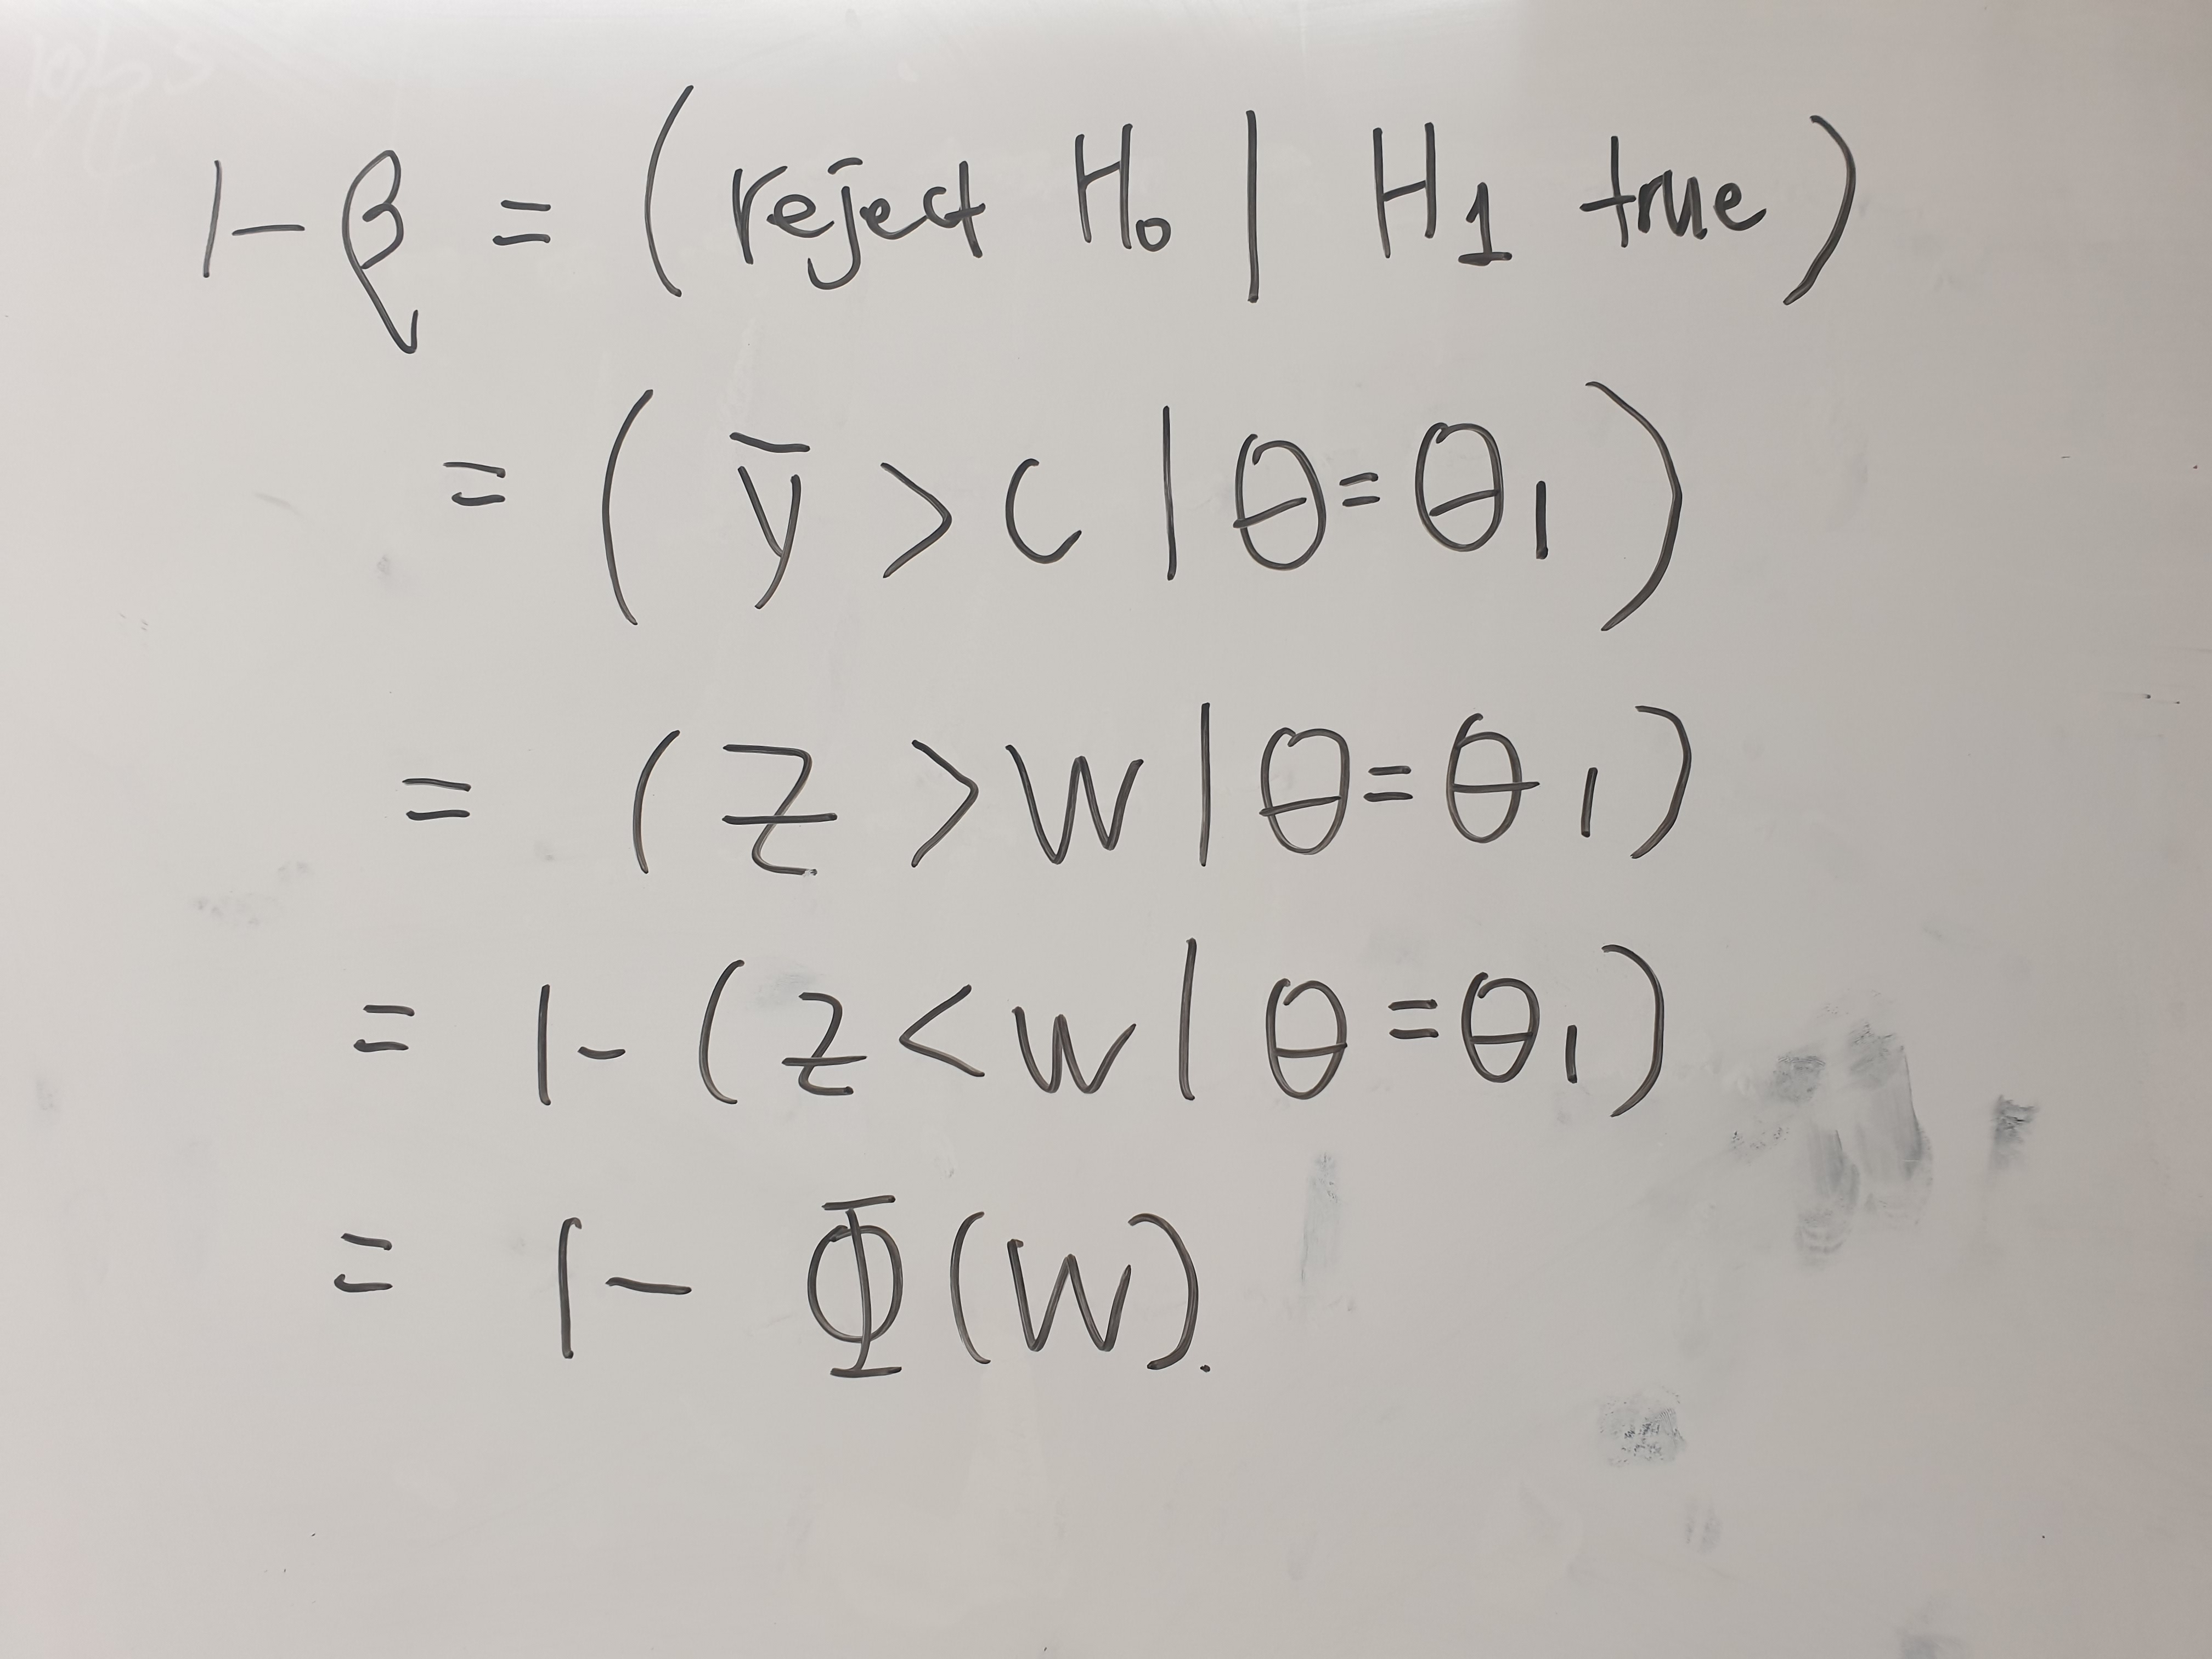 1-β = (reject H₀ | H₁ true)
= (ȳ > c | θ = θ₁)
= (Z > W | θ = θ₁)
= 1- (Z < W | θ = θ₁)
= 1 - Φ(W).